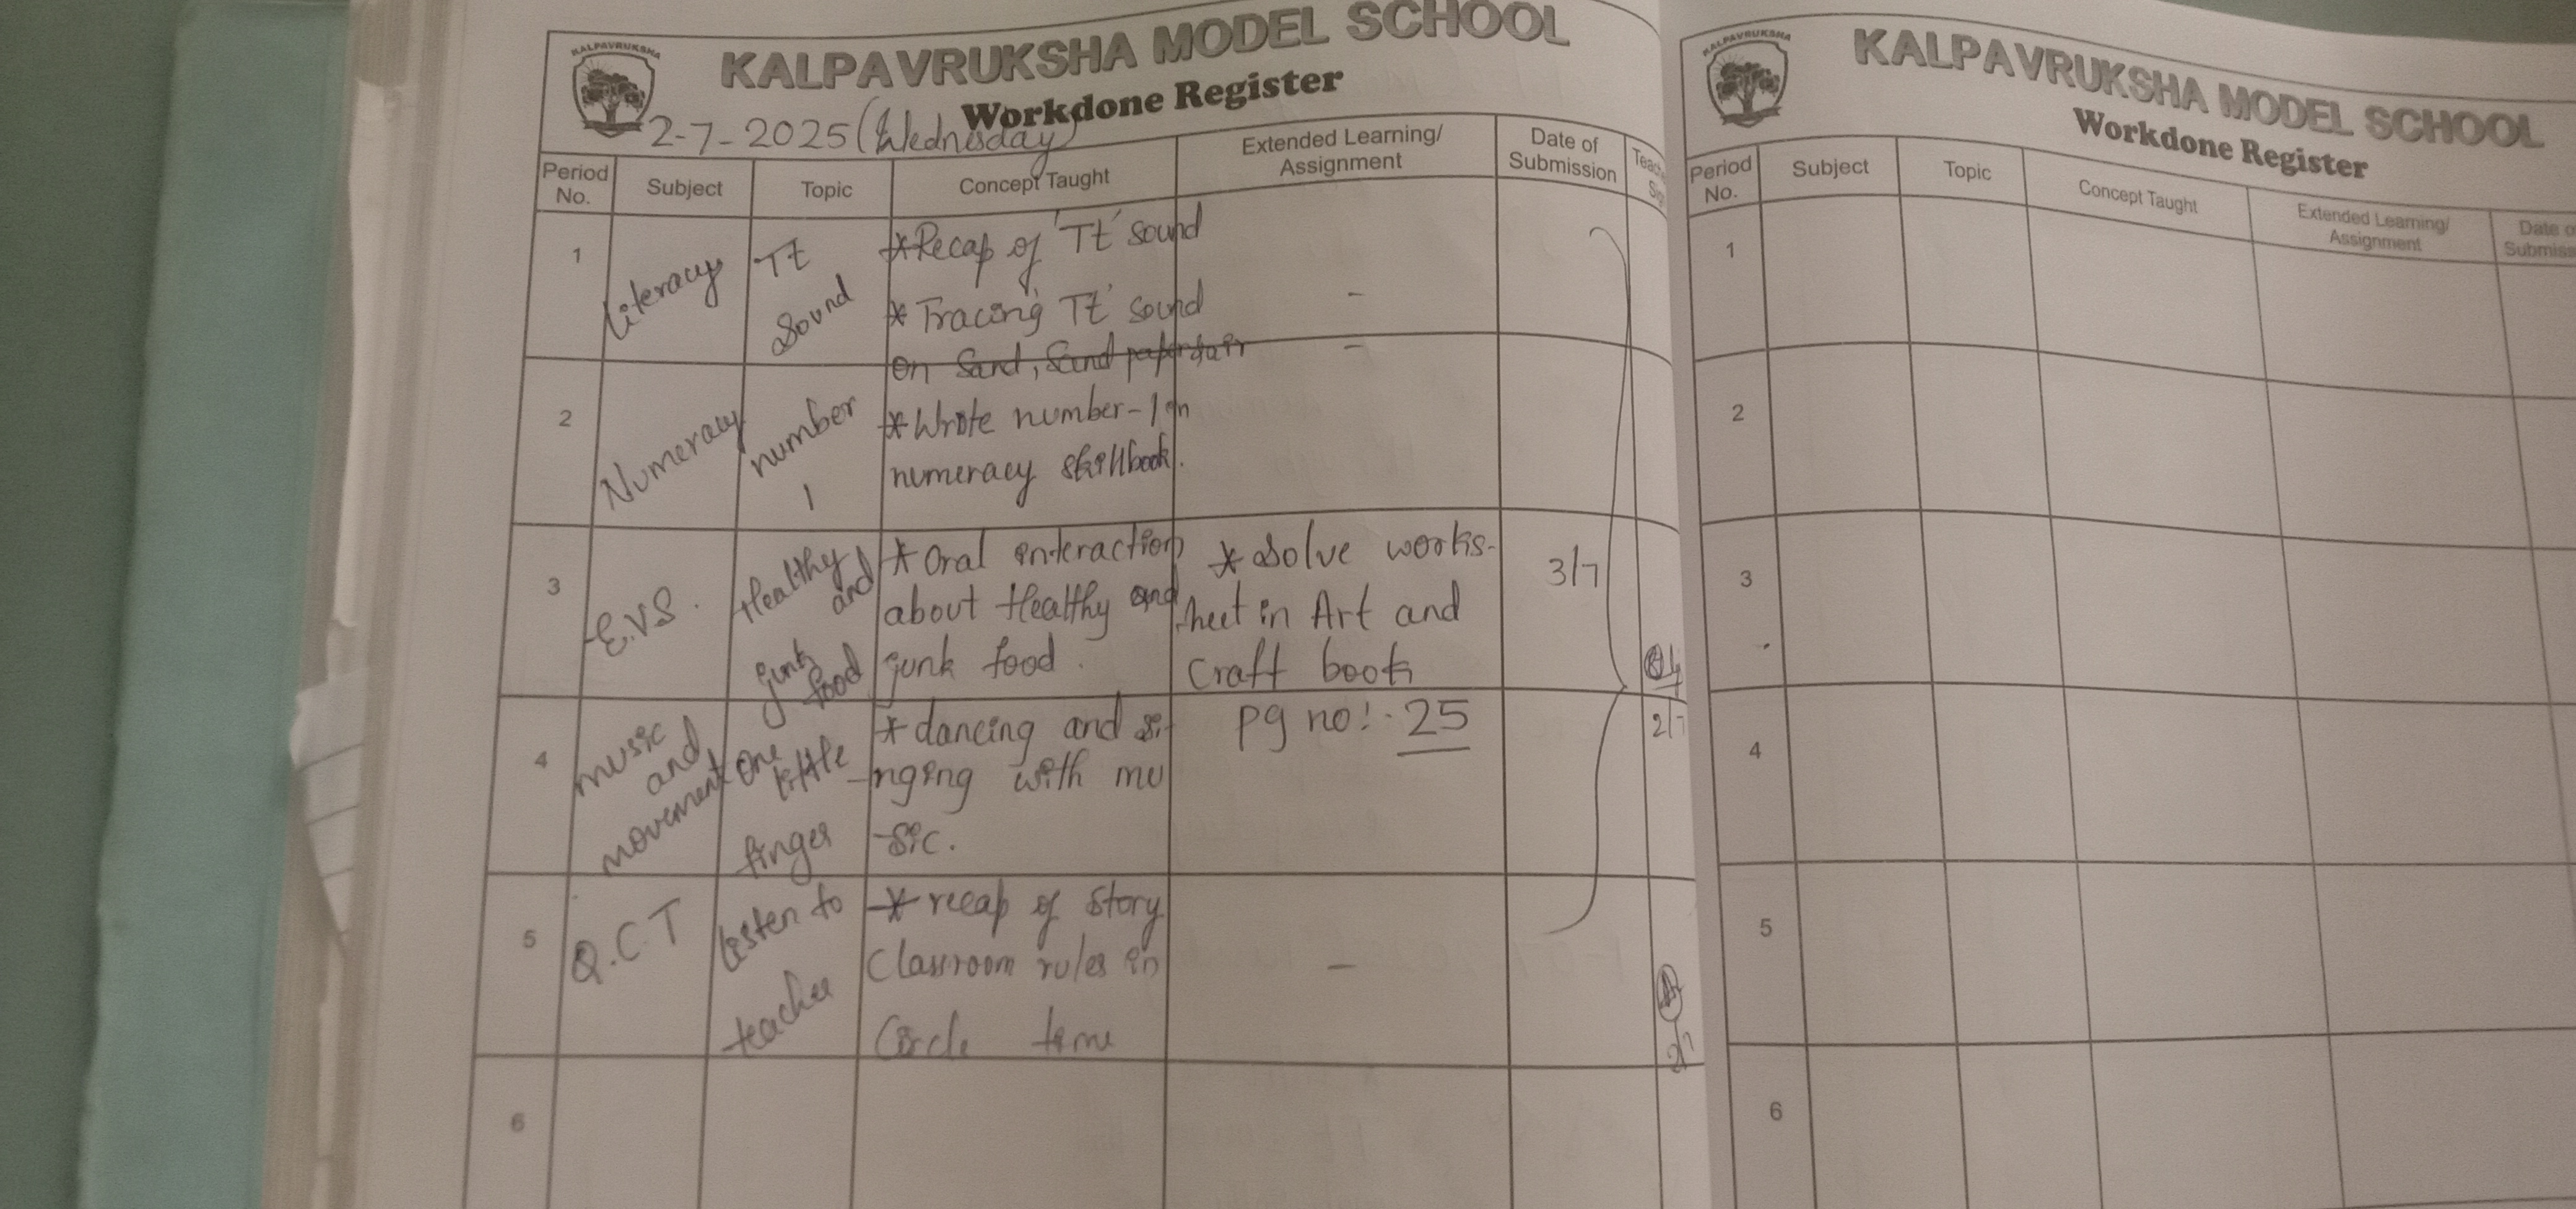 KALPAVRUKSHA
KALPAVRUKSHA MODEL SCHOOL
Workdone Register
2-7-2025 (Wednesday)
Period No.
Subject
Topic
Concept Taught
Extended Learning/
Assignment
Date of
Submission
1
Literacy
Tt
Sound
*Recap of 'Tt' sound
* Tracing 'Tt' sound
on Sand, Sand paper
-
2
Numeracy
number
1
*Wrote number-1 in
numeracy skillbook.
-
3
E.V.S.
Healthy
and
junk
food
* Oral interaction
about Healthy and
junk food.
* Solve works-
heet in Art and
Craft book
pg no:- 25
3/7
4
music
and
movement
One
little
finger
* dancing and si-
-nging with mu
-sic.
2/7
5
Q.C.T
Listen to
teacher
* recap of story
Classroom rules in
Circle time
-
6
KALPAVRUKSHA
KALPAVRUKSHA MODEL SCHOOL
Workdone Register
Period
No.
Subject
Topic
Concept Taught
Extended Learning/
Assignment
1
2
3
4
5
6